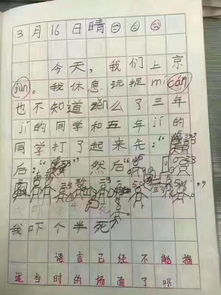 3月16日晴
今天，我们上京
jùn。我休息玩捉mí cáng
也不知道怎么了三年
jí的同学和五年jí的
同学打了起来先："
"然后"
后："
我吓个半死
语言已经不能描
述当时的场面了吗